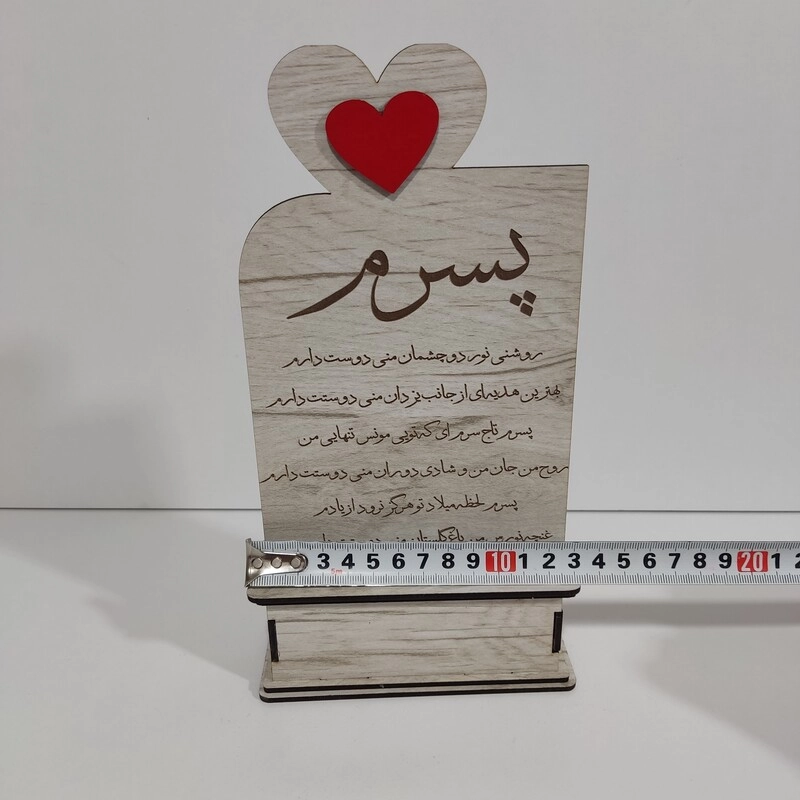 پسرم
روشنی نور دو چشمان منی دوست دارم
بهترین هدیه‌ای از جانب یزدان منی دوستت دارم
پسرم تاج سرم ای که تویی مونس تنهایی من
روح من جان من و شادی دوران منی دوستت دارم
پسرم لحظه میلاد تو هرگز نرود از یادم
غنچه نورس من باغ گلستان منی
3 4 5 6 7 8 9 10 1 2 3 4 5 6 7 8 9 20 1 2